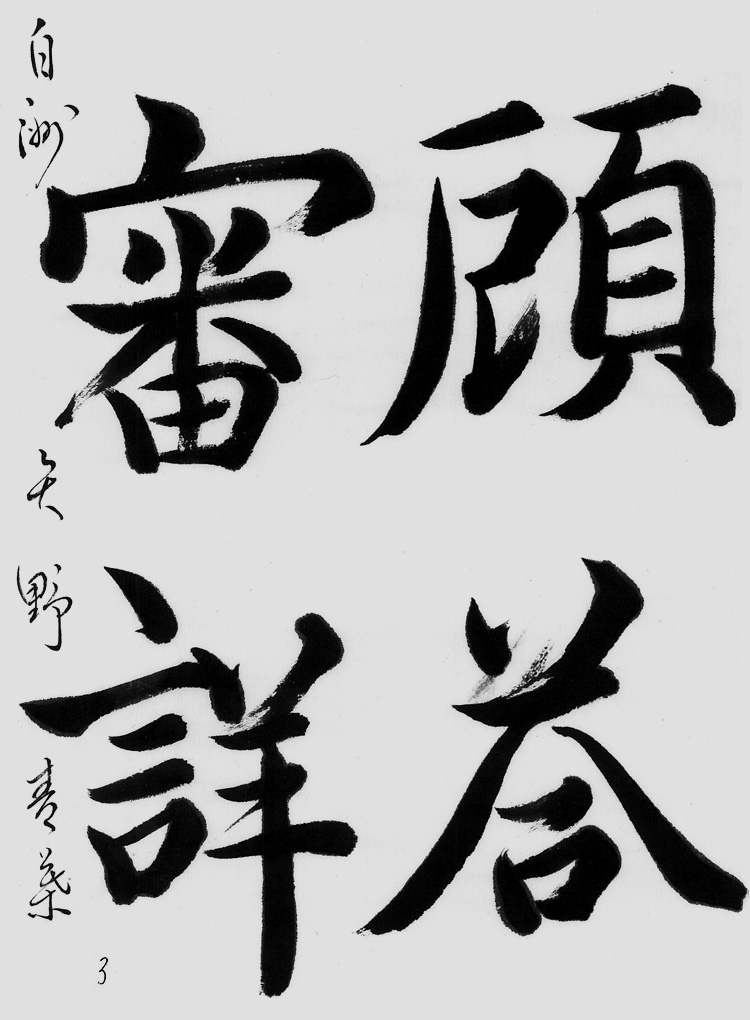 顧答
審詳
自洲 矢野 青葉
3